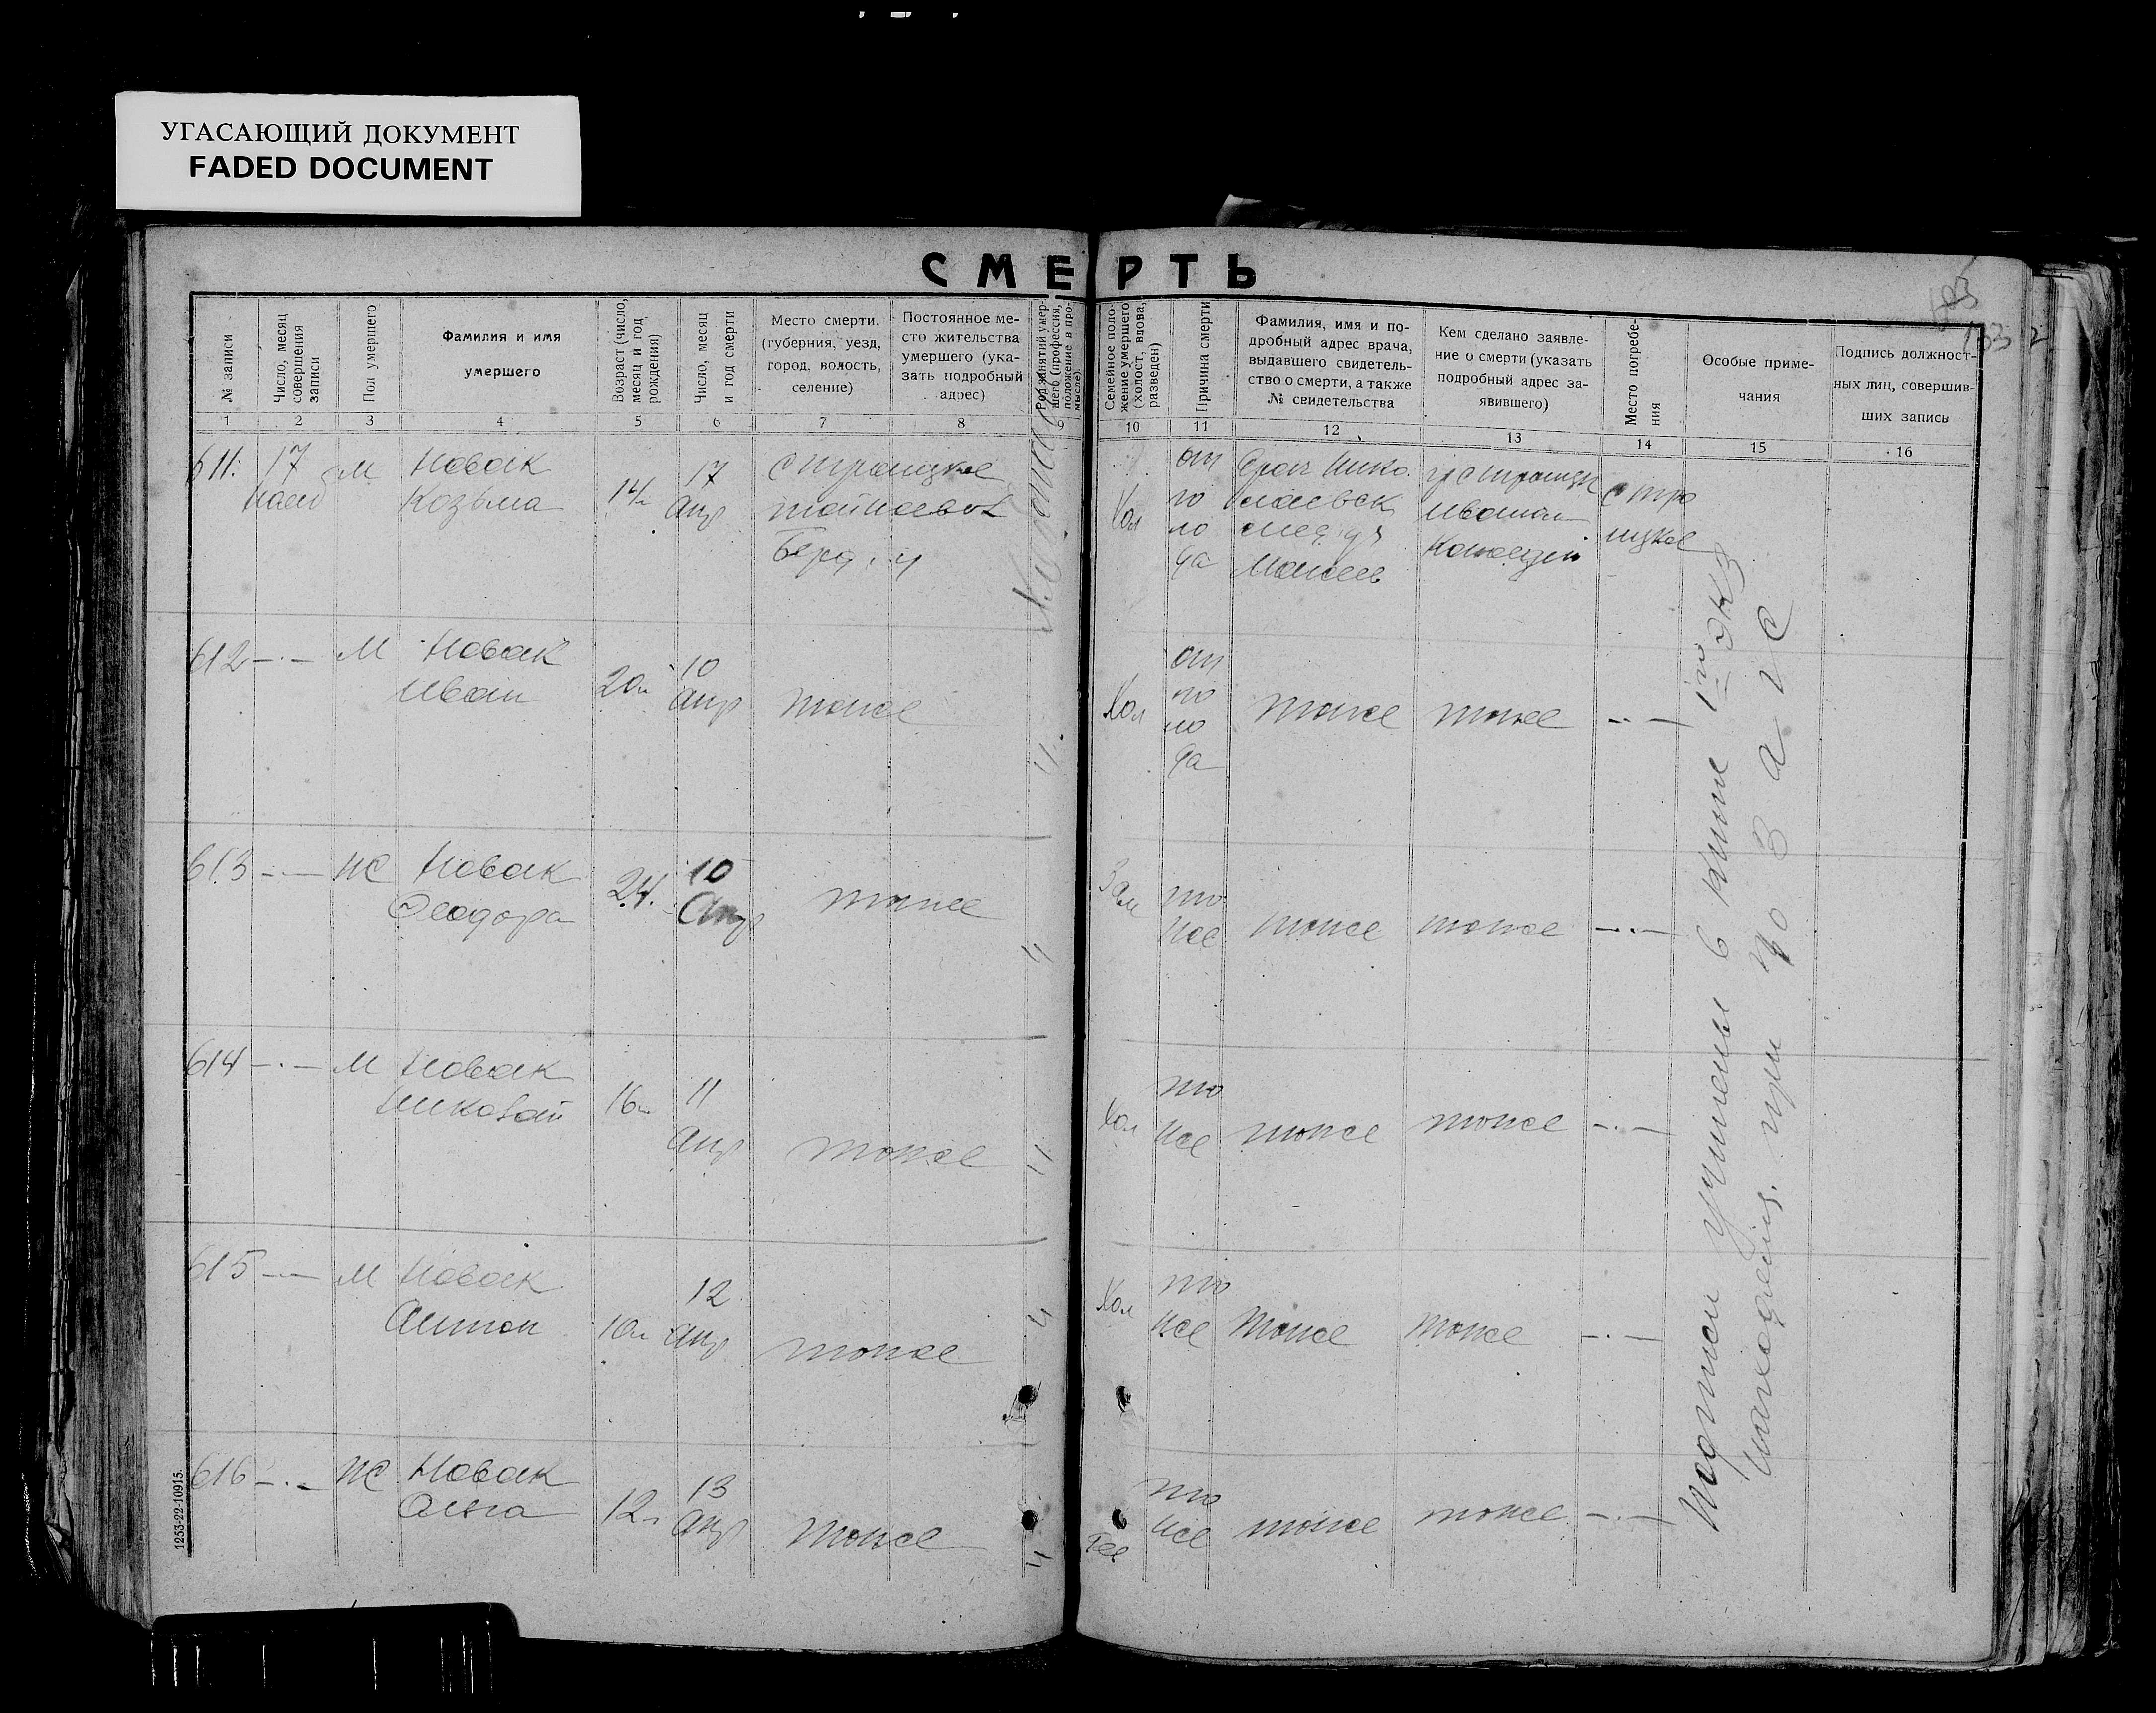 УГАСАЮЩИЙ ДОКУМЕНТ
FADED DOCUMENT
СМЕРТЬ
№ записи
Число, месяц совершения записи
Пол умершего
Фамилия и имя
умершего
Возраст (число, месяц и год рождения)
Число, месяц и год смерти
Место смерти,
(губерния, уезд,
город, волость,
селение)
Постоянное ме-
сто жительства
умершего (ука-
зать подробный
адрес)
Род занятий умер-
шего (профессия,
положение в про-
мысле).
Семейное поло-
жение умершего
(холост, вдова,
разведен)
Причина смерти
Фамилия, имя и по-
дробный адрес врача,
выдавшего свидетель-
ство о смерти, а также
№ свидетельства
Кем сделано заявле-
ние о смерти (указать
подробный адрес за-
явившего)
Место погребе-
ния
Особые приме-
чания
Подпись должност-
ных лиц, совершив-
ших запись
1 2 3 4 5 6 7 8 9 10 11 12 13 14 15 16
611 17 М Новак 17 с Троицкое от Врач Нико
Козьма 14 Апр Хол го лаевск Иван с Тро
ло мед ицкое
Берд. у да
612 —·— М Новак 10 от
Иван 20 Апр тоже Хол го тоже тоже —·—
ло
да
613 —·— Ж Новак 24. 10 Зам то
Феодора Апр тоже же тоже тоже —·—
614 —·— М Новак 16 11 Хол то
Николай Апр тоже же тоже тоже —·—
615 —·— М Новак 12 Хол то
Антон 10 Апр тоже же тоже тоже —·—
616 —·— Ж Новак 12 13 то
Анна Апр тоже же тоже тоже —·—
Подписи учинены в книге 1го экз
находящ. при ЗАГС
1253-22-10915.